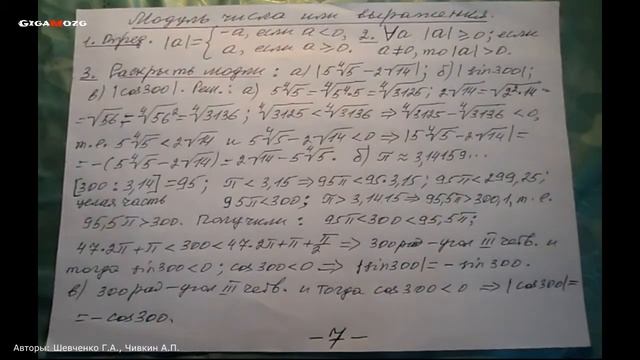 GIGAMOZG
Модуль числа или выражения.
1. Опред. |a| = { -a, если a<0, 2. ∀a |a| ≥ 0; если
a, если a ≥ 0. a≠0, то |a| > 0.
3. Раскрыть модули: а) |5∜5 - 2√14|; б) |sin300|;
в) |cos300|. Реш.: а) 5∜5 = ∜5⁴·5 = ∜3125; 2√14 = √2²·14 =
= √56 = ∜56² = ∜3136; ∜3125 < ∜3136 ⇒ ∜3125 - ∜3136 < 0,
т.е. 5∜5 < 2√14 и 5∜5 - 2√14 < 0 ⇒ |5∜5 - 2√14| =
= -(5∜5 - 2√14) = 2√14 - 5∜5. б) π ≈ 3,14159...
[300 : 3,14] = 95; π < 3,15 ⇒ 95π < 95·3,15; 95π < 299,25;
целая часть 95π < 300; π > 3,1415 ⇒ 95,5π > 300,1, т.е.
95,5π > 300. Получили: 95π < 300 < 95,5π;
47·2π + π < 300 < 47·2π + π + π/2 ⇒ 300 рад - угол III четв. и
тогда sin300 < 0; cos300 < 0 ⇒ |sin300| = - sin300.
в) 300 рад - угол III четв. и тогда cos300 < 0 ⇒ |cos300| =
= - cos300.
- 7 -
Авторы: Шевченко Г.А., Чивкин А.П.